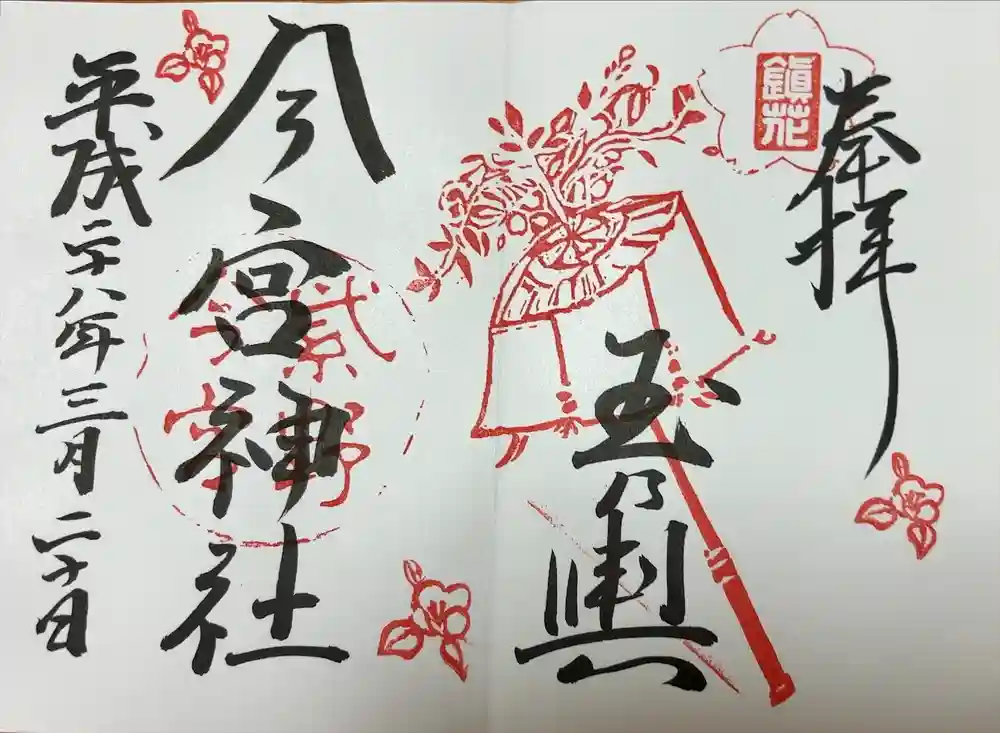 奉拝
鎭花
玉乃輿
今宮神社
紫野
平成二十八年三月二十日